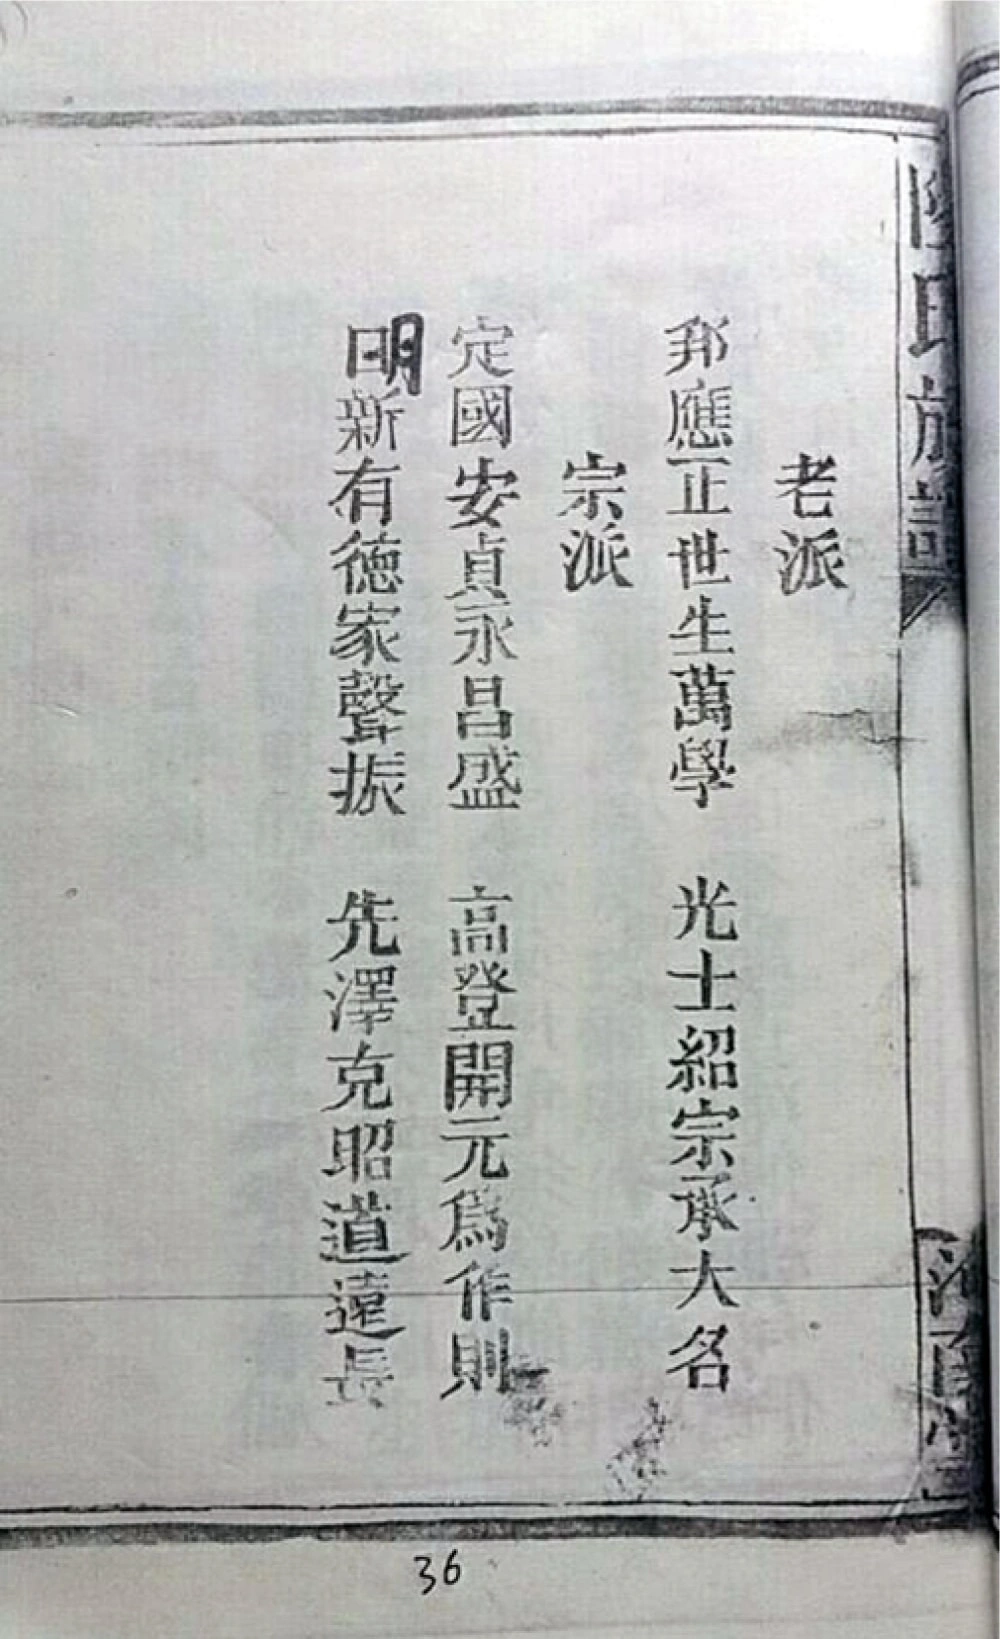 氏族譜
老派
邦應正世生萬學　光士紹宗承大名
宗派
定國安貞永昌盛　高登開元爲作則
明新有德家聲振　先澤克昭道遠長
36